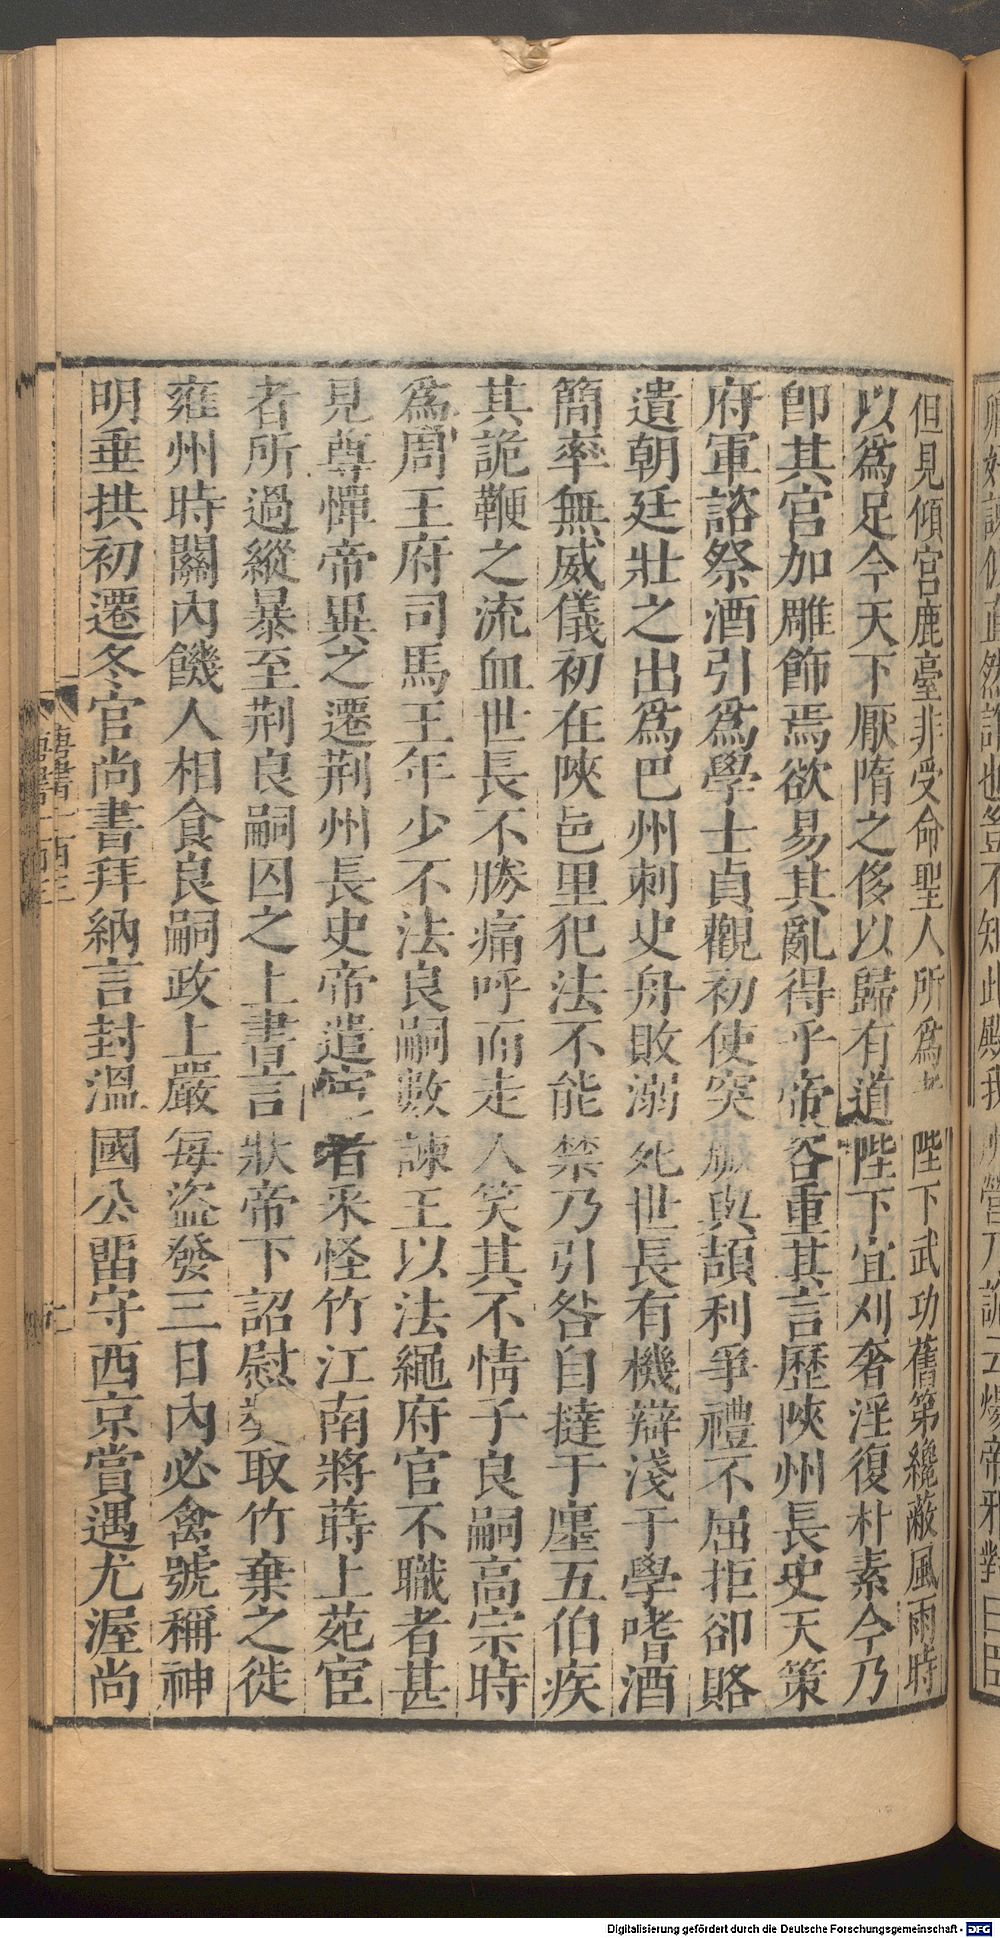 但見傾宮鹿臺非受命聖人所爲陛下武功舊第纔蔽風雨時
以爲足今天下厭隋之侈以歸有道陛下宜刈奢淫復朴素今乃
卽其宮加雕飾焉欲易其亂得乎帝咨重其言歷陝州長史天策
府軍諮祭酒引爲學士貞觀初使突厥與頡利爭禮不屈拒卻賂
遺朝廷壯之出爲巴州刺史舟敗溺死世長有機辯淺于學嗜酒
簡率無威儀初在陝邑里犯法不能禁乃引咎自撻于廛五伯疾
其詭鞭之流血世長不勝痛呼而走人笑其不情子良嗣高宗時
爲周王府司馬王年少不法良嗣數諫王以法繩府官不職者甚
見尊憚帝異之遷荆州長史帝遣宦者采怪竹江南將蒔上苑宦
者所過縱暴至荆良嗣囚之上書言狀帝下詔慰奬取竹棄之徙
雍州時關內饑人相食良嗣政上嚴每盜發三日內必禽號稱神
明垂拱初遷冬官尚書拜納言封溫國公畱守西京賞遇尤渥尚
唐書一百三
Digitalisierung gefördert durch die Deutsche Forschungsgemeinschaft - DFG